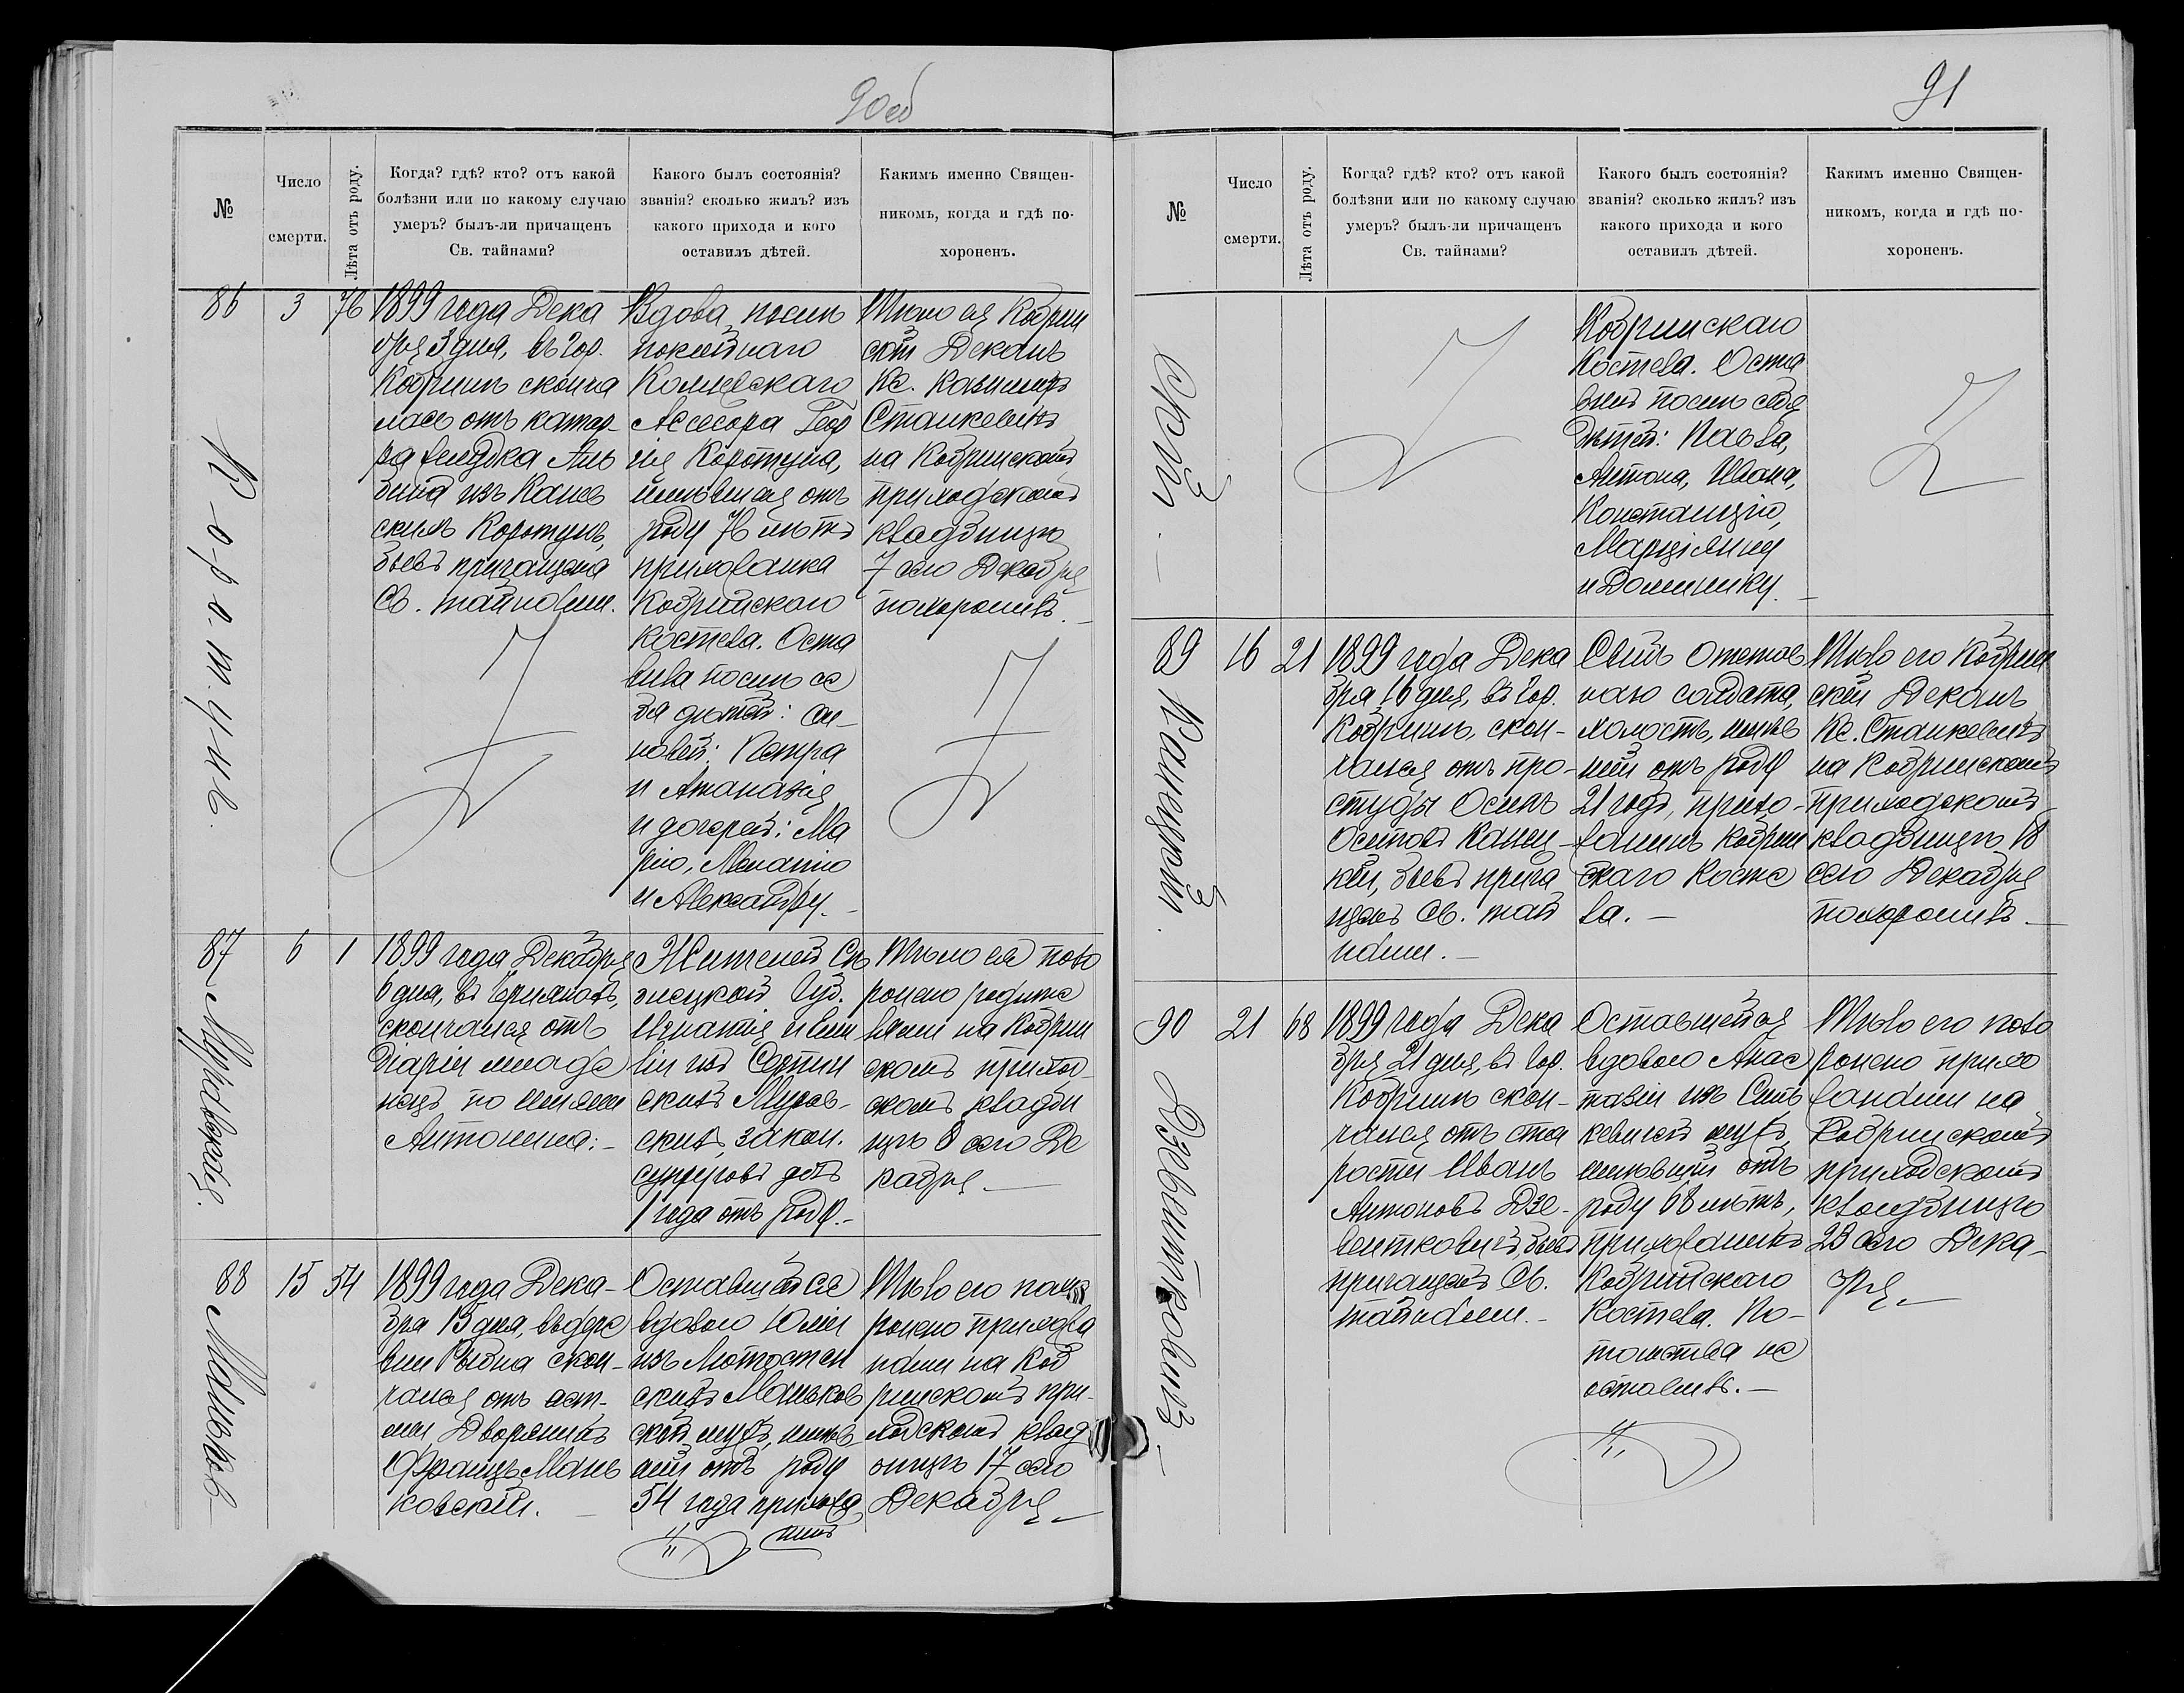 90об
№
Число
смерти.
Лѣта отъ роду.
Когда? гдѣ? кто? отъ какой
болѣзни или по какому случаю
умеръ? былъ-ли причащенъ
Св. тайнами?
Какого былъ состоянія?
званія? сколько жилъ? изъ
какого прихода и кого
оставилъ дѣтей.
Какимъ именно Священ-
никомъ, когда и гдѣ по-
хороненъ.
86
Коротунъ.
3
76
1899 года Дека
бря 3 дня, въ гор.
Кобринѣ сконча
лась отъ катар-
ра желудка Аль
бина изъ
Коротунъ,
бывъ причащена
Св. тайнами.
Вдова послѣ
покойнаго
Коллежскаго
Ассесора
Коротуна,
имѣвшая отъ
роду 76 лѣтъ
прихожанка
Кобринскаго
Костела. Оста
вила послѣ се
бя дѣтей: сы-
новей: Петра
и Атаназія
и дочерей: Ма
рію, Меланію
и Александру.
Тѣло ея Кобрин
скій Деканъ
Кс. Казимиръ
Станкевичъ
на Кобринскомъ
приходскомъ
кладбищѣ
7 сего Декабря
похоронилъ.
87
6
1
1899 года Декабря
6 дня, въ
скончалась отъ
младе
нецъ по имени
Антонина.
Жителей Сѣ
длецкой Губ.
Игнатія и
изъ
скихъ
скихъ, закон.
супруговъ дочь
1 года отъ роду.
Тѣло ея похо
ронено родите
лями на Кобрин
скомъ приход-
скомъ кладби
щѣ 8 сего Де
кабря
88
Маньков
15
54
1899 года Дека-
бря 15 дня, въ дере
внѣ Рыбна скон-
чался отъ аст-
мы Дворянинъ
Францъ Мань
ковскій.
Оставшейся
вдовою Юліи
изъ
скихъ Маньков
ской мужъ, имѣв
шій отъ роду
54 года прихожа
нинъ
Тѣло его похо
ронено прихожа
нами на Коб
ринскомъ при-
ходскомъ клад
бищѣ 17 сего
Декабря
91
№
Число
смерти.
Лѣта отъ роду.
Когда? гдѣ? кто? отъ какой
болѣзни или по какому случаю
умеръ? былъ-ли причащенъ
Св. тайнами?
Какого былъ состоянія?
званія? сколько жилъ? изъ
какого прихода и кого
оставилъ дѣтей.
Какимъ именно Священ-
никомъ, когда и гдѣ по-
хороненъ.
скій.
Кобринскаго
Костела. Оста
вилъ послѣ себя
дѣтей: Павла,
Антона, Ивана,
Констанцію,
Марціянну
и Доминику.
89
16
21
1899 года Дека
бря 16 дня, въ гор.
Кобринѣ, скон-
чался отъ про-
студы Осипъ
Осиповъ
бывъ прича
щенъ Св. тай
нами.
Сынъ отстав
наго солдата,
холостъ, имѣв
шій отъ роду
21 годъ, прихо-
жанинъ Кобрин
скаго Косте
ла.
Тѣло его Кобрин
скій Деканъ
Кс. Станкевичъ
на Кобринскомъ
приходскомъ
кладбищѣ 18
сего Декабря
похоронилъ
90
Дзевитковичъ
21
68
1899 года Дека
бря 21 дня, въ гор.
Кобринѣ скон-
чался отъ ста
рости Иванъ
Антоновъ Дзе-
витковичъ, бывъ
причащенъ Св.
тайнами.
Оставшейся
вдовою Анас
тазіи изъ
мужъ,
имѣвшій отъ
роду 68 лѣтъ,
прихожанинъ
Кобринскаго
Костела. По-
томства не
оставилъ.
Тѣло его похо
ронено прихо
жанами на
Кобринскомъ
приходскомъ
кладбищѣ
23 сего Дека-
бря